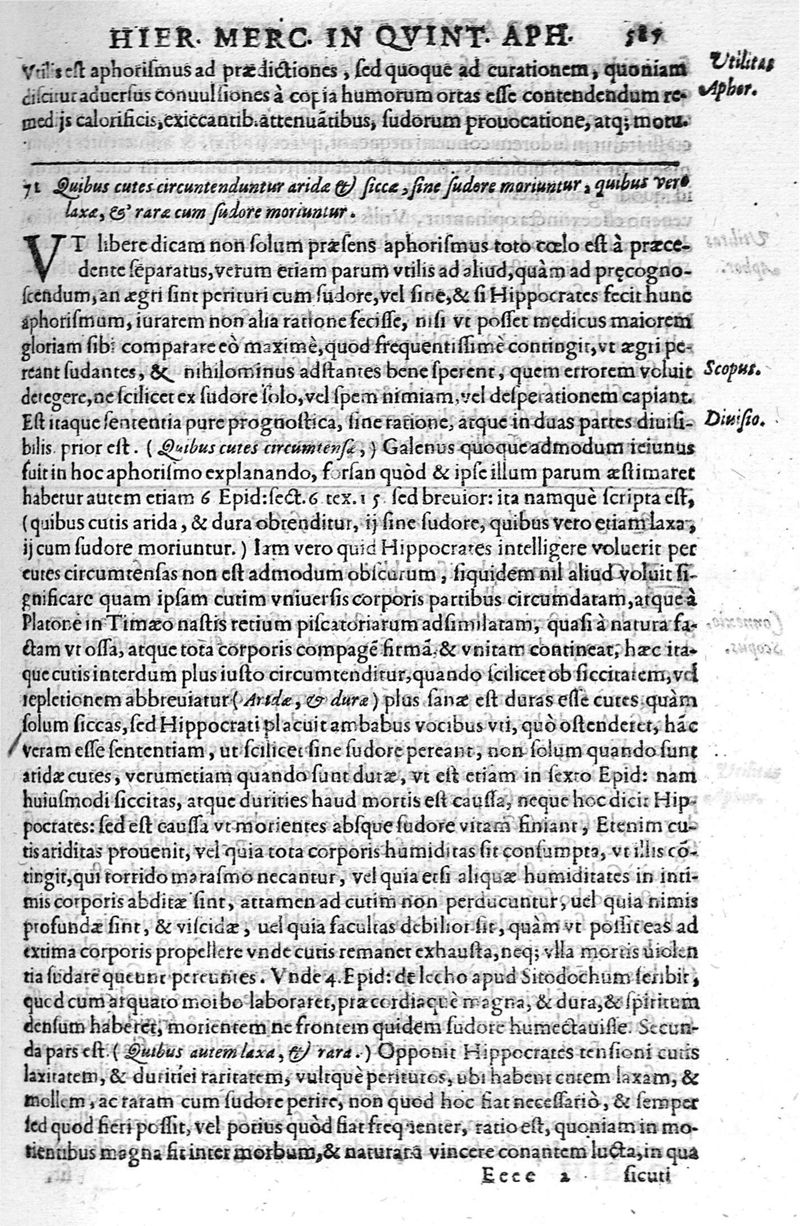 HIER. MERC. IN QVINT. APH. 587
Vtilis est aphorismus ad prædictiones, sed quoque ad curationem, quoniam
Vtilitas
discitur aduersus conuulsiones à copia humorum ortas esse contendendum re-
Aphor.
med js calorificis, exiccantib. attenuãtibus, sudorum prouocatione, atq; motu.
71 Quibus cutes circuntenduntur aridæ & siccæ, sine sudore moriuntur, quibus vero
laxæ, & raræ cum sudore moriuntur.
VT libere dicam non solum præsens aphorismus toto cœlo est à præce-
dente separatus, verum etiam parum vtilis ad aliud, quàm ad pręcogno-
scendum, an ægri sint perituri cum sudore, vel sine, & si Hippocrates fecit hunc
aphorismum, iurarem non alia ratione fecisse, nisi vt posset medicus maiorem
gloriam sibi comparare eò maximè, quod frequentissimè contingit, vt ægri pe-
reant sudantes, & nihilominus adstantes bene sperent, quem errorem voluit
Scopus.
detegere, ne scilicet ex sudore solo, vel spem nimiam, vel desperationem capiant.
Est itaque sententia pure prognostica, sine ratione, atque in duas partes diuisi-
Diuisio.
bilis. prior est. (Quibus cutes circumtensæ,) Galenus quoque admodum ieiunus
fuit in hoc aphorismo explanando, forsan quòd & ipse illum parum æstimaret
habetur autem etiam 6 Epid: sect. 6 tex. 15 sed breuior: ita namquè scripta est,
(quibus cutis arida, & dura obtenditur, ij sine sudore, quibus vero etiam laxa,
ij cum sudore moriuntur.) Iam vero quid Hippocrates intelligere voluerit per
cutes circumtensas non est admodum obscurum, siquidem nil aliud voluit si-
gnificare quam ipsam cutim vniuersis corporis partibus circumdatam, atque à
Platone in Timæo nastis retium piscatoriarum adsimilatam, quasi à natura fa-
ctam vt ossa, atque tota corporis compagẽ firmã, & vnitam contineat, hæc ita-
que cutis interdum plus iusto circumtenditur, quando scilicet ob siccitatem, vel
repletionem abbreuiatur (Aridæ, & duræ) plus sanæ est duras esse cutes quàm
solum siccas, sed Hippocrati placuit ambabus vocibus vti, quò ostenderet, hãc
veram esse sententiam, ut scilicet sine sudore pereant, non solum quando sunt
aridæ cutes, verumetiam quando sunt duræ, vt est etiam in sexto Epid: nam
huiusmodi siccitas, atque durities haud mortis est caussa, neque hoc dicit Hip-
pocrates: sed est caussa vt morientes absque sudore vitam finiant, Etenim cu-
tis ariditas prouenit, vel quia tota corporis humiditas sit consumpta, vt illis cõ-
tingit, qui torrido marasmo necantur, vel quia etsi aliquæ humiditates in inti-
mis corporis abditæ sint, attamen ad cutim non perducuntur, uel quia nimis
profundæ sint, & viscidæ, uel quia facultas debilior sit, quàm vt possit eas ad
extima corporis propellere vnde cutis remanet exhausta, neq; vlla mortis uiolen
tia sudare queunt pereuntes. Vnde 4. Epid: de lecho apud Sitodochum scribit,
quod cum arquato morbo laboraret, præcordiaquè magna, & dura, & spiritum
densum haberet, morientem ne frontem quidem sudore humectauisse. Secun-
da pars est. (Quibus autem laxa, & rara.) Opponit Hippocrates tensioni cutis
laxitatem, & duritiei raritatem, vultquè perituros, ubi habent cutem laxam, &
mollem, ac raram cum sudore perire, non quod hoc fiat necessariò, & semper
sed quod fieri possit, vel potius quòd fiat frequenter, ratio est, quoniam in mo-
rientibus magna fit inter morbum, & naturam vincere conantem lucta, in qua
Eeee 2 sicuti